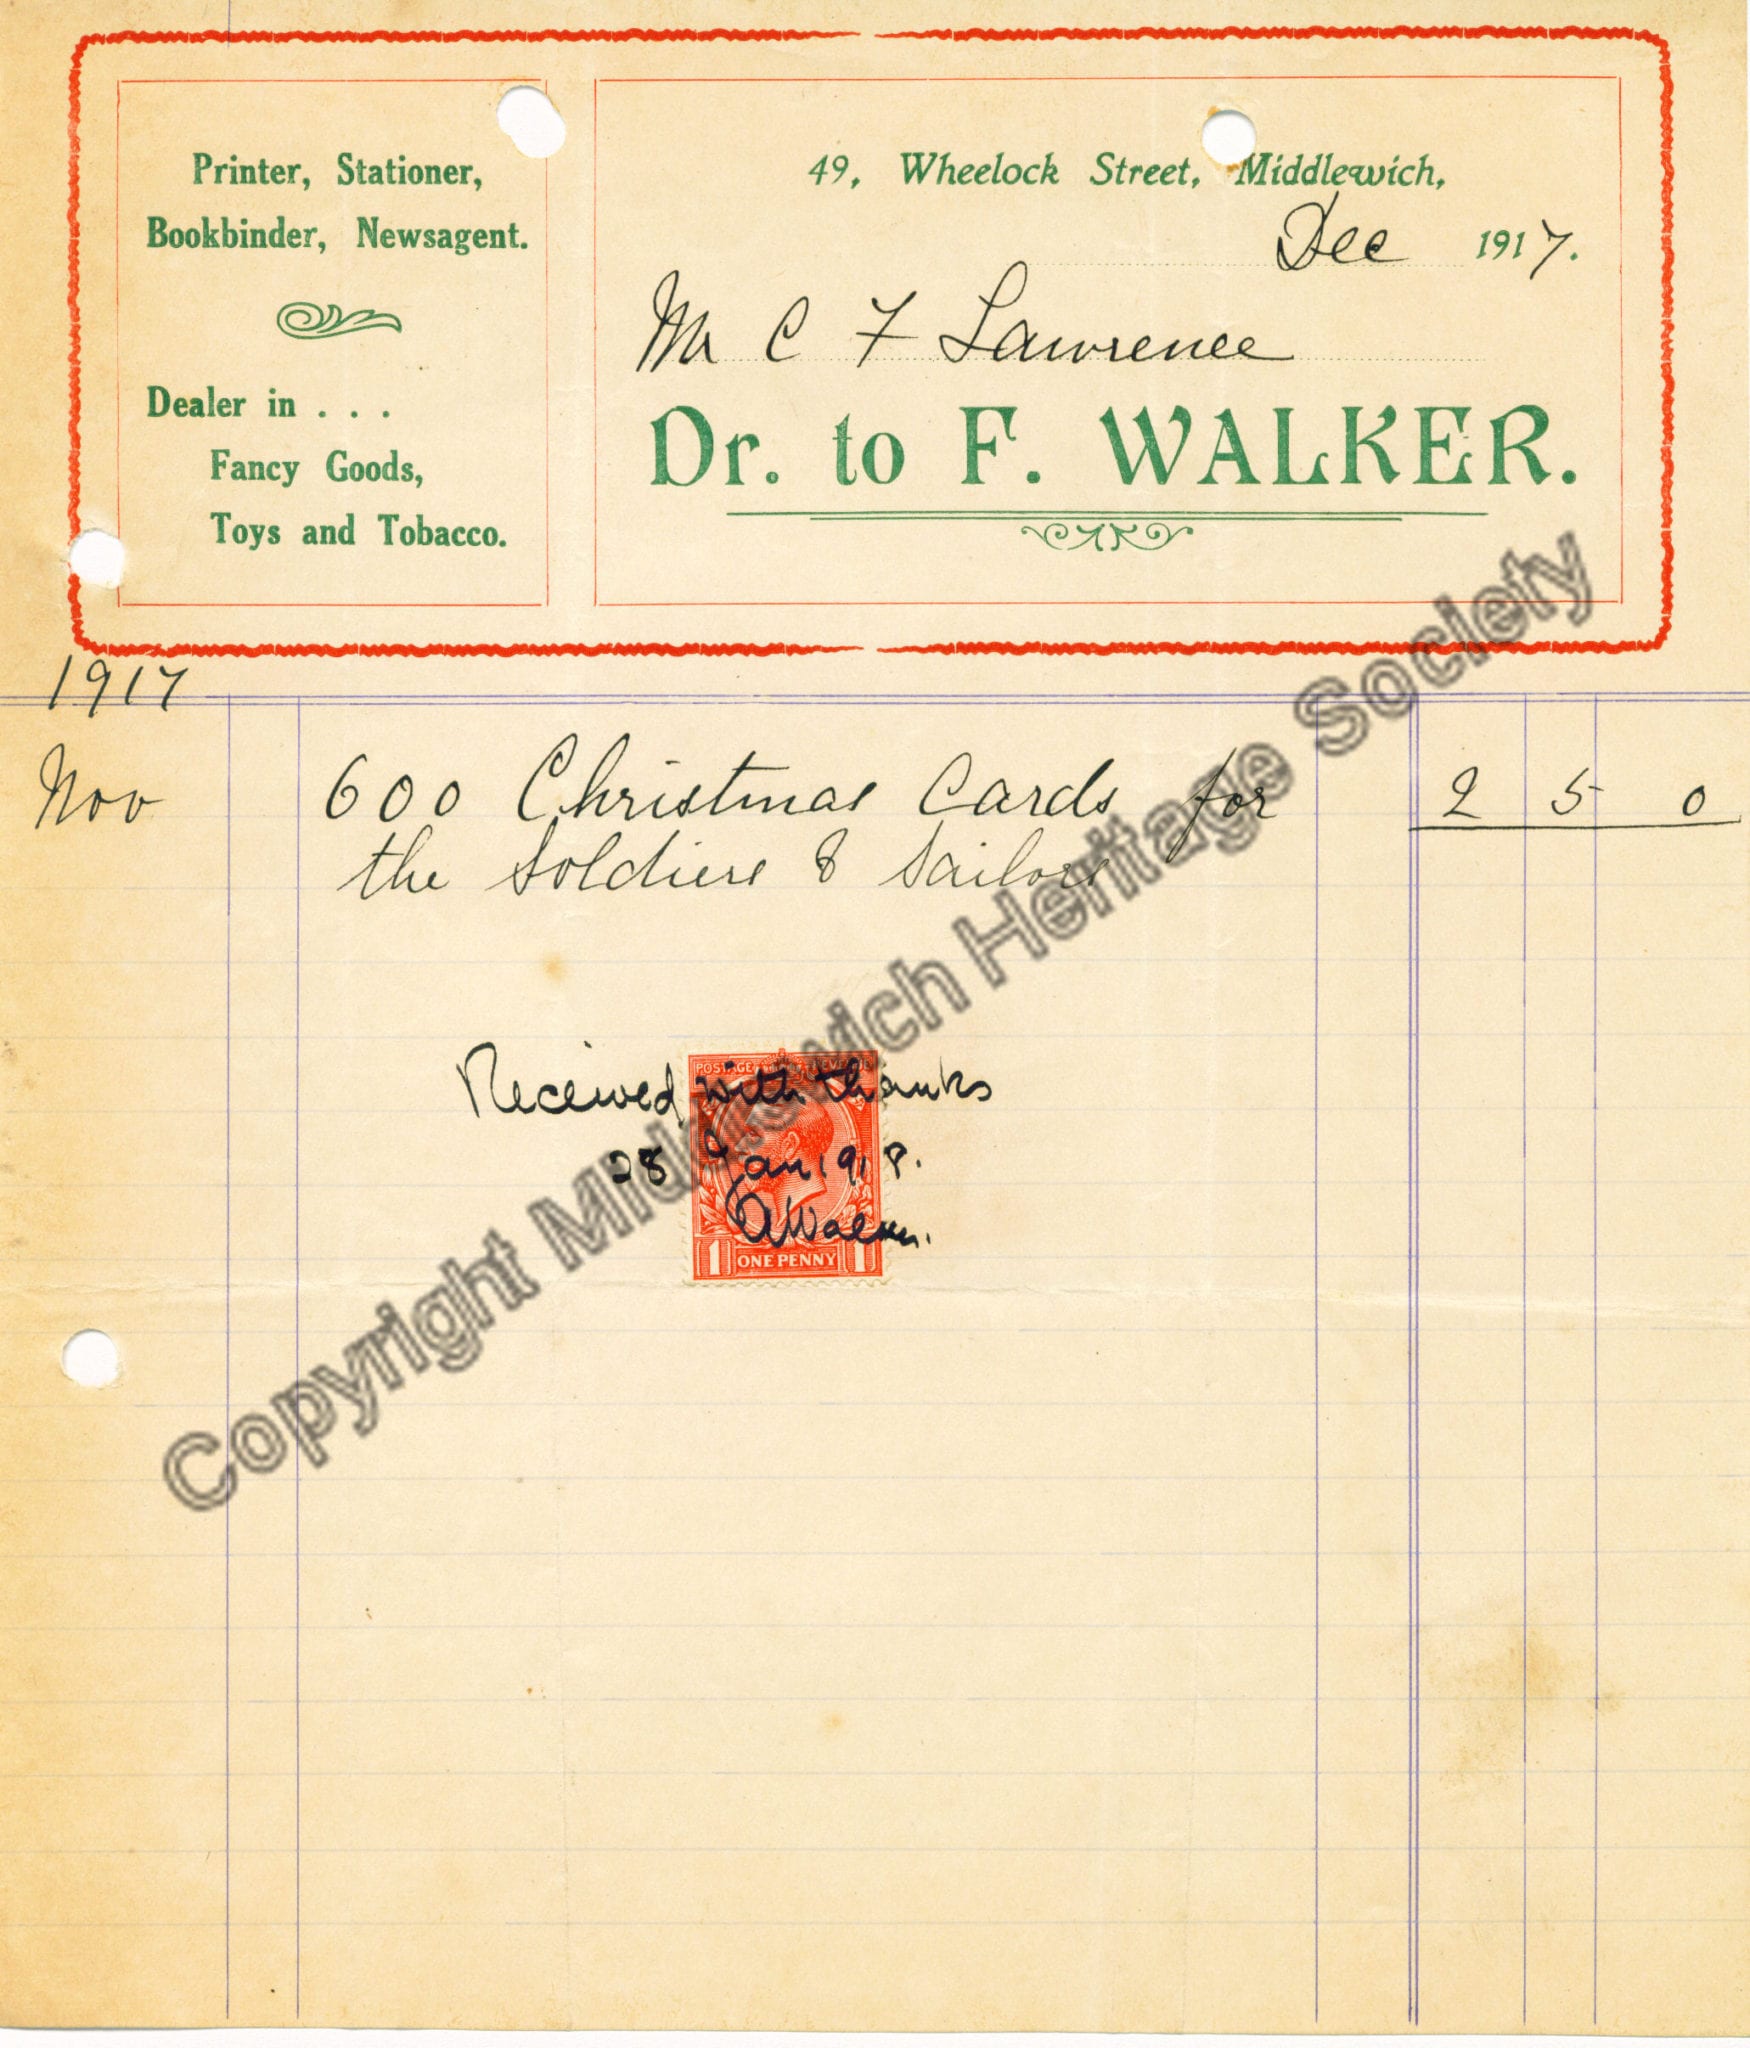 Printer, Stationer,
Bookbinder, Newsagent.
Dealer in . . .
Fancy Goods,
Toys and Tobacco.
49, Wheelock Street, Middlewich,
Dec 1917.
Mr C F Lawrence
Dr. to F. WALKER.
1917
Nov 600 Christmas Cards for 2 5 0
the Soldiers & Sailors
Received with thanks
28 Jan 1918.
Walker.
POSTAGE REVENUE
1 ONE PENNY 1
Copyright Middlewich Heritage Society